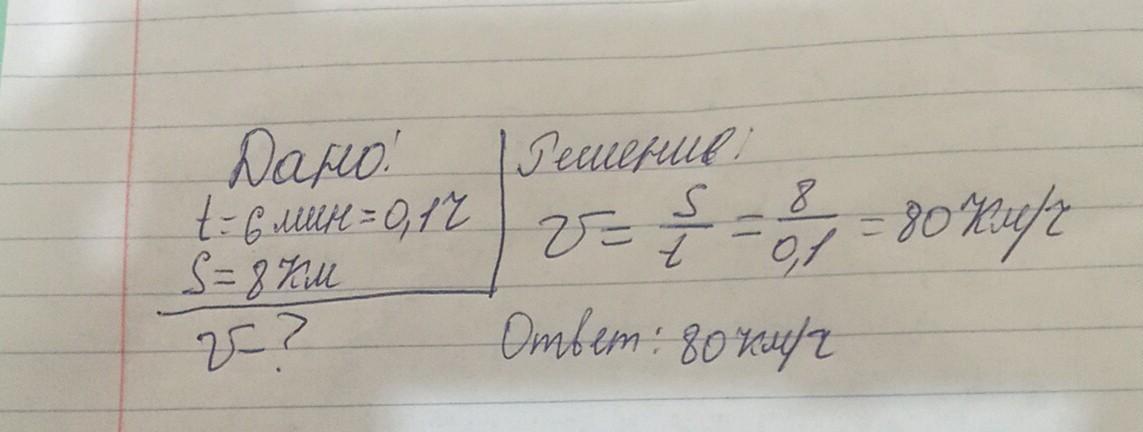 Дано:
t=6 мин=0,1ч
S=8км
v-?
Решение:
v= S/t = 8/0,1 = 80 км/ч
Ответ: 80 км/ч